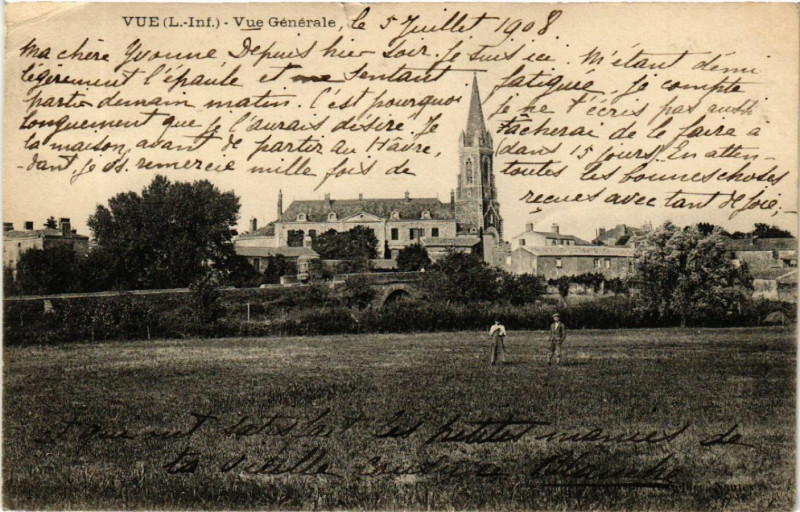 VUE (L.-Inf.) - Vue Générale, le 5 Juillet 1908
Ma chère Yvonne Depuis hier soir Je suis ici. M'étant démi
légèrement l'épaule et me sentant fatiguée, je compte
partir demain matin. C'est pourquoi je ne t'écris pas aussi
longuement que je l'aurais désiré. Je tâcherai de le faire à
la maison, avant de partir au Havre, dans 15 jours. En atten-
-dant je vs. remercie mille fois de toutes les bonnes choses
reçues avec tant de joie,
et qui ont satisfait les petites mamies de
ta vieille cousine Blanche